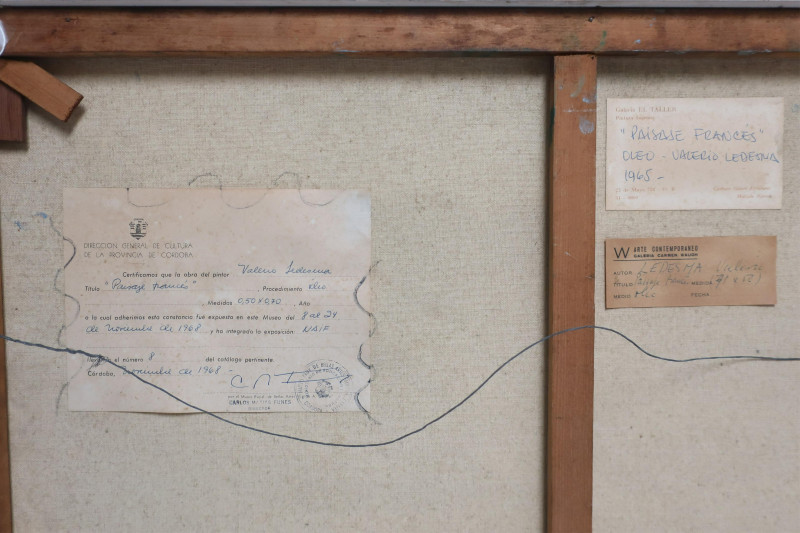 DIRECCION GENERAL DE CULTURA
DE LA PROVINCIA DE CORDOBA
Certificamos que la obra del pintor Valerio Ledesma
Título "Paisaje francés", Procedimiento óleo
, Medidas 0,50 x 0,70, Año
a la cual adherimos esta constancia fué expuesta en este Museo del 8 al 24
de noviembre de 1968 y ha integrado la exposición NAIF
el número 8 del catálogo pertinente.
Córdoba, noviembre de 1968 -
CARLOS MATIAS FUNES
DIRECTOR
Galería EL TALLER
"PAISAJE FRANCES"
OLEO - VALERIO LEDESMA
1965 -
W ARTE CONTEMPORANEO
GALERIA CARMEN WAUGH
AUTOR LEDESMA Valerio
TITULO Paisaje MEDIDA
MEDIO óleo FECHA